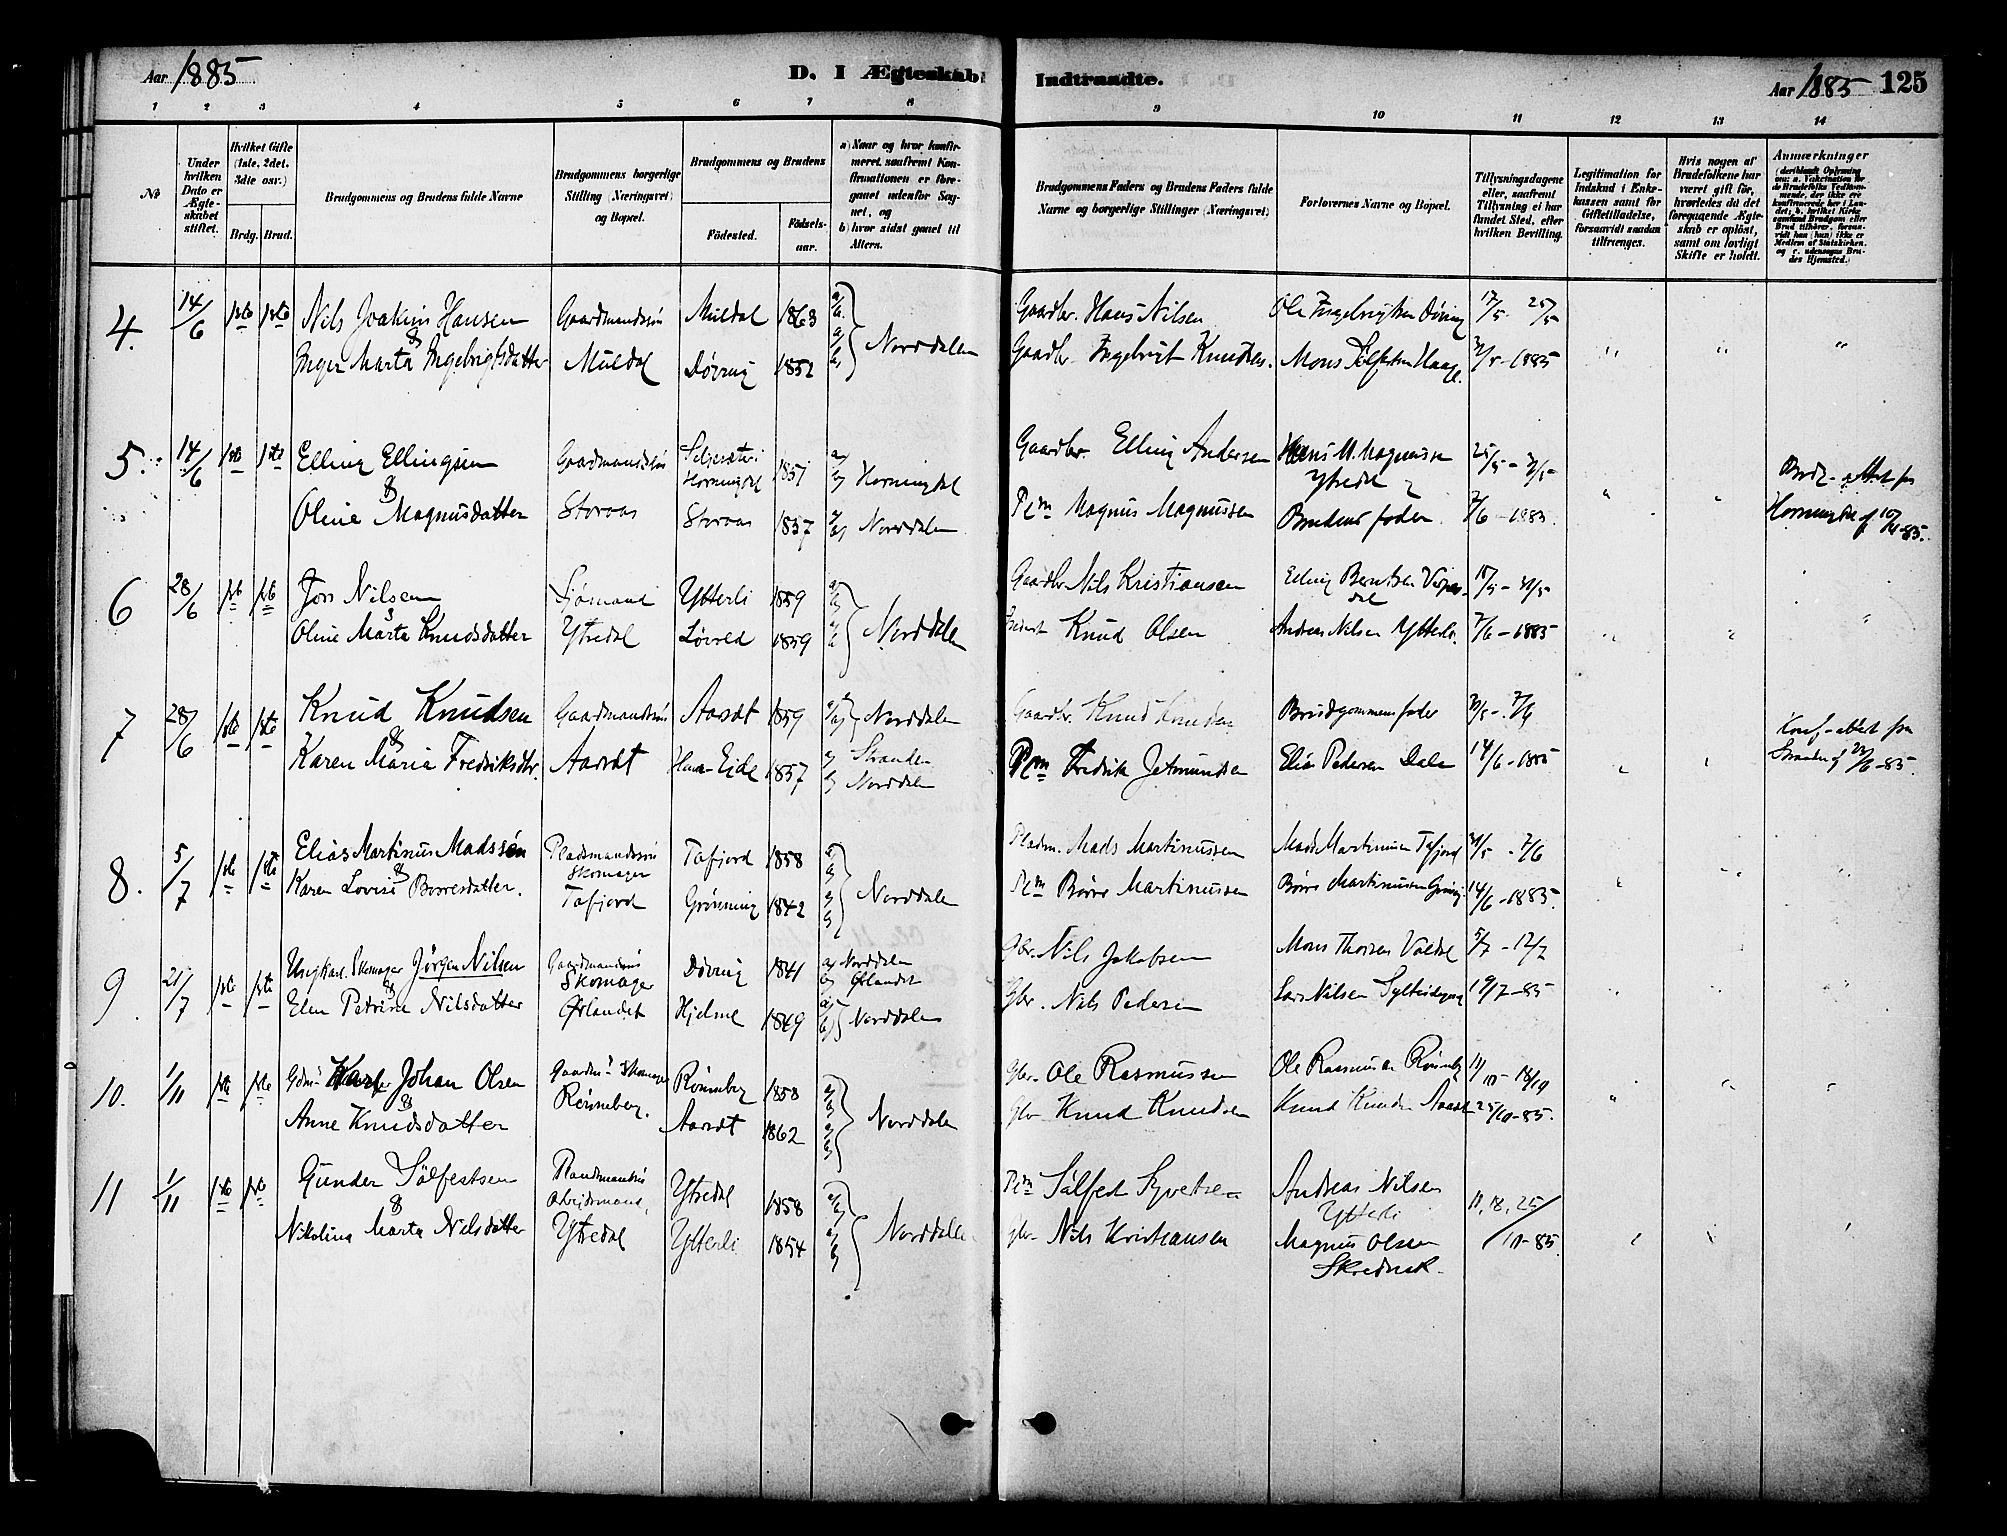 Aar 1885 D. I Ægteskab Indtraadte. Aar 1885 125
1 2 3 4 5 6 7 8 9 10 11 12 13 14
No
Under hvilken Dato er Ægteskabet stiftet.
Hvilket Gifte (1ste, 2det, 3die osv.)
Brdg. Brud.
Brudgommens og Brudens fulde Navne
Brudgommens borgerlige Stilling (Næringsvei) og Bopæl.
Brudgommens og Brudens
Fødested.
Fødselsaar.
a) Naar og hvor konfirmeret, saafremt Konfirmationen er foregaaet udenfor Sognet, og
b) hvor sidst gaaet til Alters.
Brudgommens Faders og Brudens Faders fulde Navne og borgerlige Stillinger (Næringsvei)
Forlovernes Navne og Bopæl.
Tillysningsdagene eller, saafremt Tillysning ei har fundet Sted, efter hvilken Bevilling.
Legitimation for Indskud i Enkekassen samt for Giftetilladelse, forsaavidt saadan tiltrænges.
Hvis nogen af Brudefolkene har været gift før, hvorledes da det foregaaende Ægteskab er opløst, samt om lovligt Skifte er holdt.
Anmærkninger
4. 14/6 1ste 1ste Nils Joakim Hansen Gaardmandssøn Muldal 1863 Gaardbr. Hans Nilsen Ole Ingebrigtsen Døving 17/5 25/5
& Inger Marta Ingebrigtsdatter Muldal Døving 1852 Norddalen Gaardbr. Ingebrigt Knudsen. Mons Sølfestsen 31/5-1885
5. 14/6 1ste 1ste Elling Ellingsen Gaardmandssøn Horningdal 1851 Horningdal Gaardbr. Elling Andersen Hans M. Magnussen Ytredal 25/5 - 31/5
& Oline Magnusdatter Storaas Storaas 1857 Norddalen Plm Magnus Magnussen Brudens fader. 7/6-1885. Horningdal af 10/4-85.
6 28/6 Jon Nilsen Sjømand Ytterli 1859 Gaardbr Nils Kristiansen Elling Berntsen
& Oline Marta Knudsdatter Ytredal Løvred 1859 Norddalen Knud Olsen Andreas Nilsen Ytterli. 7/6-1885
7 28/6 1ste 1ste Knud Knudsen Gaardmandssøn Aardt 1859 Norddalen Gaardbr. Knud Knudsen Brudgommens fader 31/5 - 7/6
& Karen Maria Fredriksdtr. Aardt 1857 a) Stranden b) Norddalen Plm Fredrik Jetmundsen Elias Pedersen Dale 14/6-1885 Konf-attest fra Stranden af 22/6-85.
8. 5/7 1ste 1ste Elias Martinus Madssøn Pladsmandssøn Skomager Tafjord 1858 Pladsm. Mads Martinussen Mads Martinussen Tafjord 31/5 - 7/6
& Karen Lovise Børresdatter. Tafjord Grønning 1842 Norddalen Plm Børre Martinussen Børre Martinussen 14/6-1885.
9. 21/7 1ste 1ste Ungkarl. Skomager Jørgen Nilsen Gaardmandssøn Skomager Døving 1841 a) Norddalen b) Ørlandet Gbr. Nils Jakobsen Mons Thoresen Valdal 5/7 - 12/7
& Elen Petrine Nilsdatter Ørlandet Hjelme 1849 Norddalen Gbr. Nils Pedersen Lars Nilsen 19/7-85
10. 1/11 1ste 1ste Johan Olsen Skomager Rønneberg 1858 Gbr. Ole Rasmussen Ole Rasmussen Rønneberg 11/10 - 18/10
& Anne Knudsdatter Rønneberg. Aardt 1862 Norddalen Gbr Knud Knudsen Knud Knudsen Aardt 25/10-85.
11 1/11 1ste 1ste Gunder Sølfestsen Pladsmandssøn Arbejdsmand, Ytredal 1858 Plm Sølfest Syvertsen Andreas Nilsen Ytterli 11, 18, 25/
& Nikolina Marta Nilsdatter Ytredal Ytterli 1854 Norddalen Gbr. Nils Kristiansen Magnus Olsen 10-85.